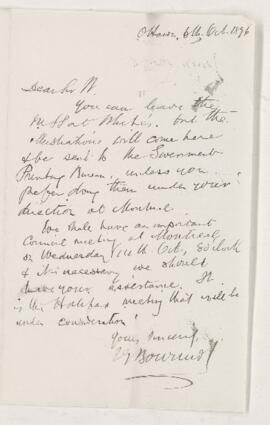 Ottawa, 6th Oct. 1896
Dear Sir W.
You can leave the
M.S. at White's. but the
illustrations will come here
& be sent to the Government
Printing Bureau, unless you
prefer doing them under your
direction at Montreal.
We shall have an important
Council meeting at Montreal
on Wednesday 14th Oct, 8 o'clock
& it is necessary we should
have your assistance. It
is the Halifax meeting that will be
under consideration.
Yours sincerely,
J G Bourinot